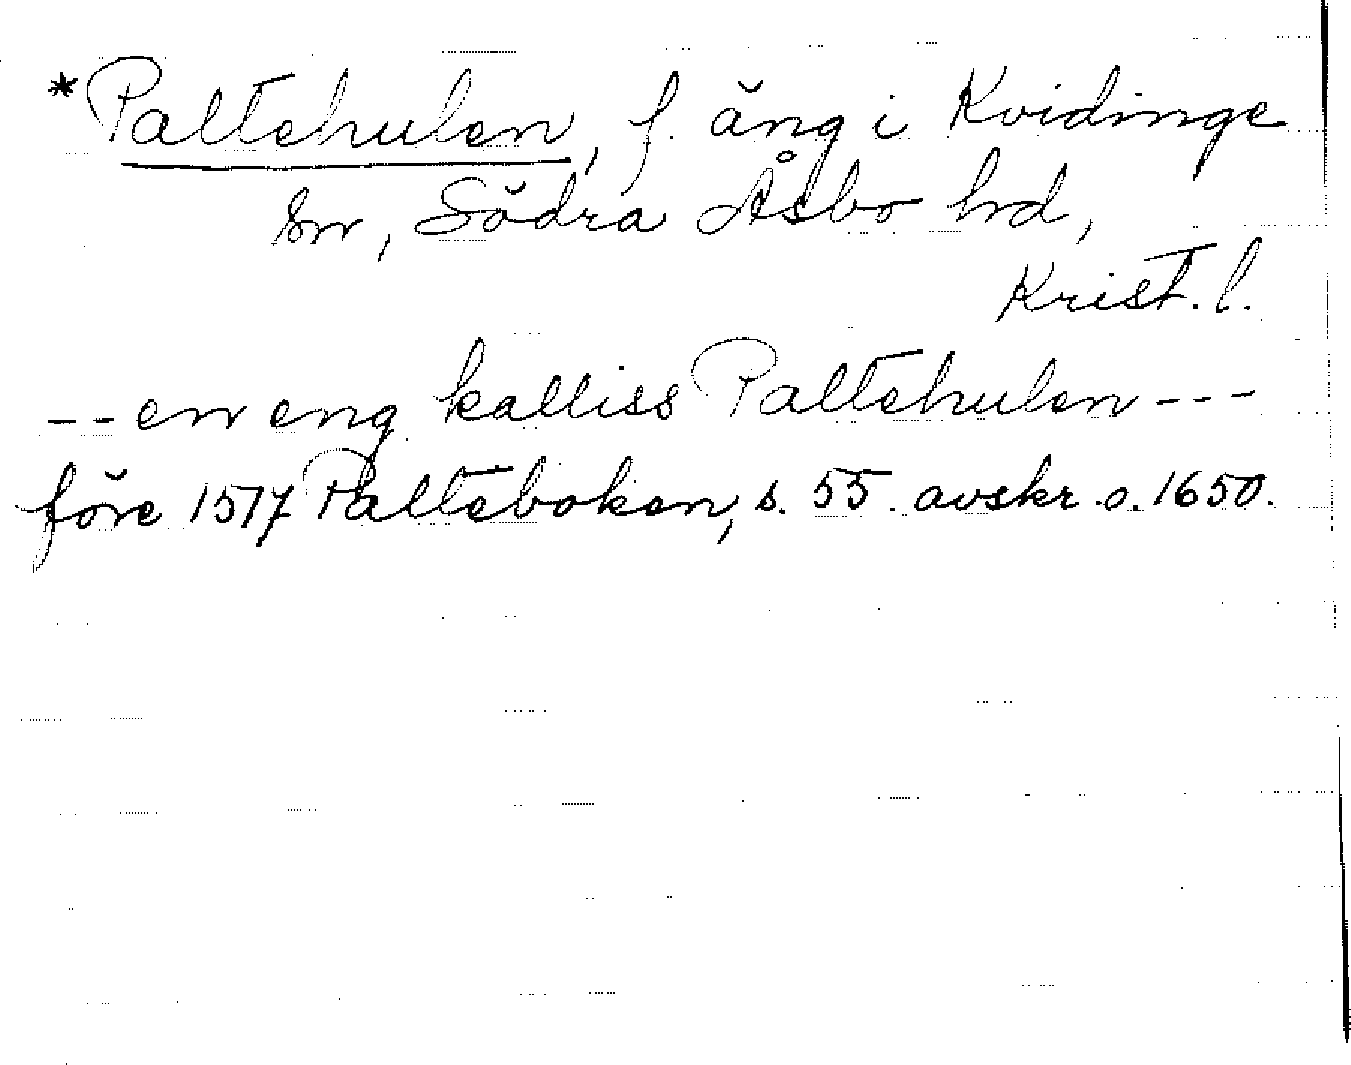 *Paltehulen, f. äng i Kvidinge
sn, Södra Åsbo hd,
Krist. l.
-- en eng kalliss Paltehulen ---
före 1517 Palteboken, s. 55. avskr. o. 1650.